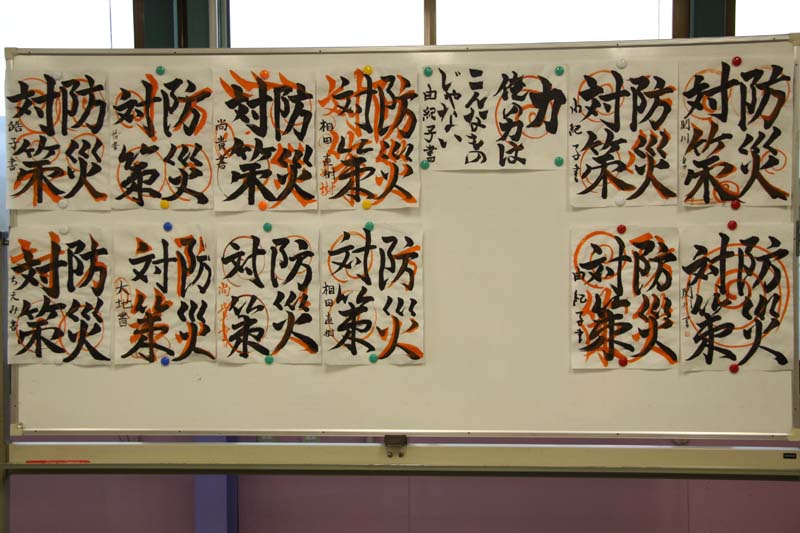 防災
対策
防災
対策
防災
対策
尚貴書
防災
対策
相田直樹
力
俺の力は
こんなもの
じゃない
由紀子書
防災
対策
由紀子書
防災
対策
関川
防災
対策
ちえみ書
防災
対策
大地書
防災
対策
防災
対策
相田直樹
防災
対策
由紀子書
防災
対策